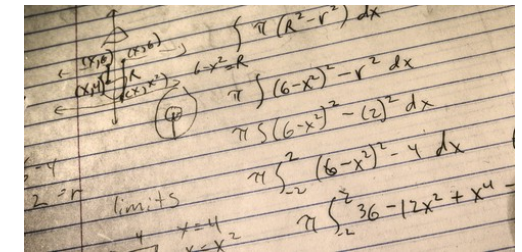 ∫ π (R² - r²) dx
(x,6) (x,6)
(x,4) R
(x,x²)
6-x²=R
π ∫ (6-x²)² - r² dx
π ∫ (6-x²)² - (2)² dx
π ∫₋₂² (6-x²)² - 4 dx
2 = r
limits
π ∫₋₂² 36 - 12x² + x⁴ -
4 y=4
y=x²